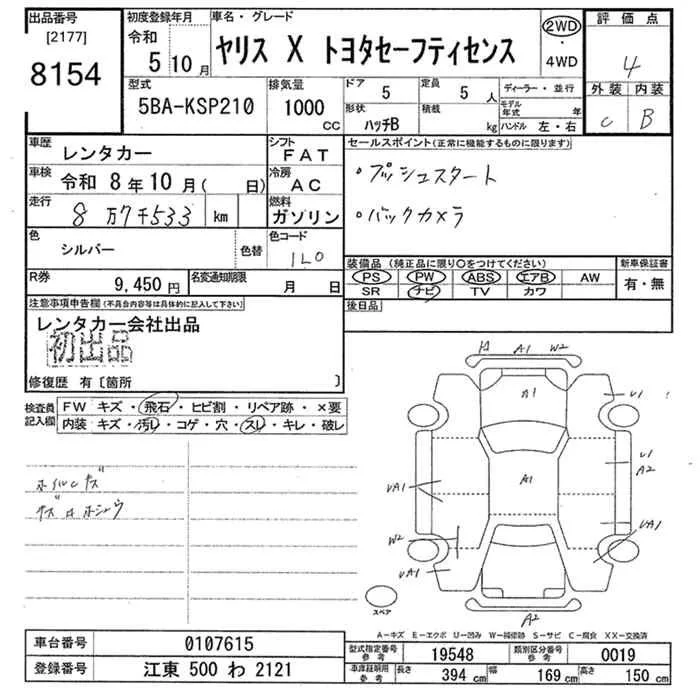 出品番号 初度登録年月 車名・グレード 評価点
[2177] 令和
8154 5 10月 ヤリス X トヨタセーフティセンス 2WD・4WD 4
型式 排気量 ドア 定員 ディーラー・並行 外装 内装
5BA-KSP210 1000 CC 5 5 人 モデル年式 年 C B
形状 積載
ハッチB kg ハンドル 左・右
車歴 レンタカー シフト FAT セールスポイント(正常に機能するものに限ります)
車検 令和 8年10月( 日) 冷房 AC ・プッシュスタート
走行 8万7千533 km 燃料 ガソリン ・バックカメラ
色 シルバー 色替 色コード 1L0
装備品(純正品に限り○をつけてください) 新車保証書
R券 9,450円 名変通知期限 月 日 PS PW ABS エアB AW 有・無
SR ナビ TV カワ
注意事項申告欄(不具合内容等は具体的に記入して下さい) 後日品
レンタカー会社出品
初出品
修復歴 有〔箇所 〕
検査員記入欄 FW キズ・飛石・ヒビ割・リペア跡・×要
内装 キズ・汚レ・コゲ・穴・スレ・キレ・破レ
ホイルキズ
A1 W2
A1 U1
U1
A2
A1
UA1
W2 UA1
UA1
スペア A2
A-キズ E-エクボ U-凹み W-補修跡 S-サビ C-腐食 XX-交換済
車台番号 0107615 型式指定番号参考 19548 類別区分番号参考 0019
登録番号 江東 500 わ 2121 車庫証明用参考 長さ 394 cm 幅 169 cm 高さ 150 cm